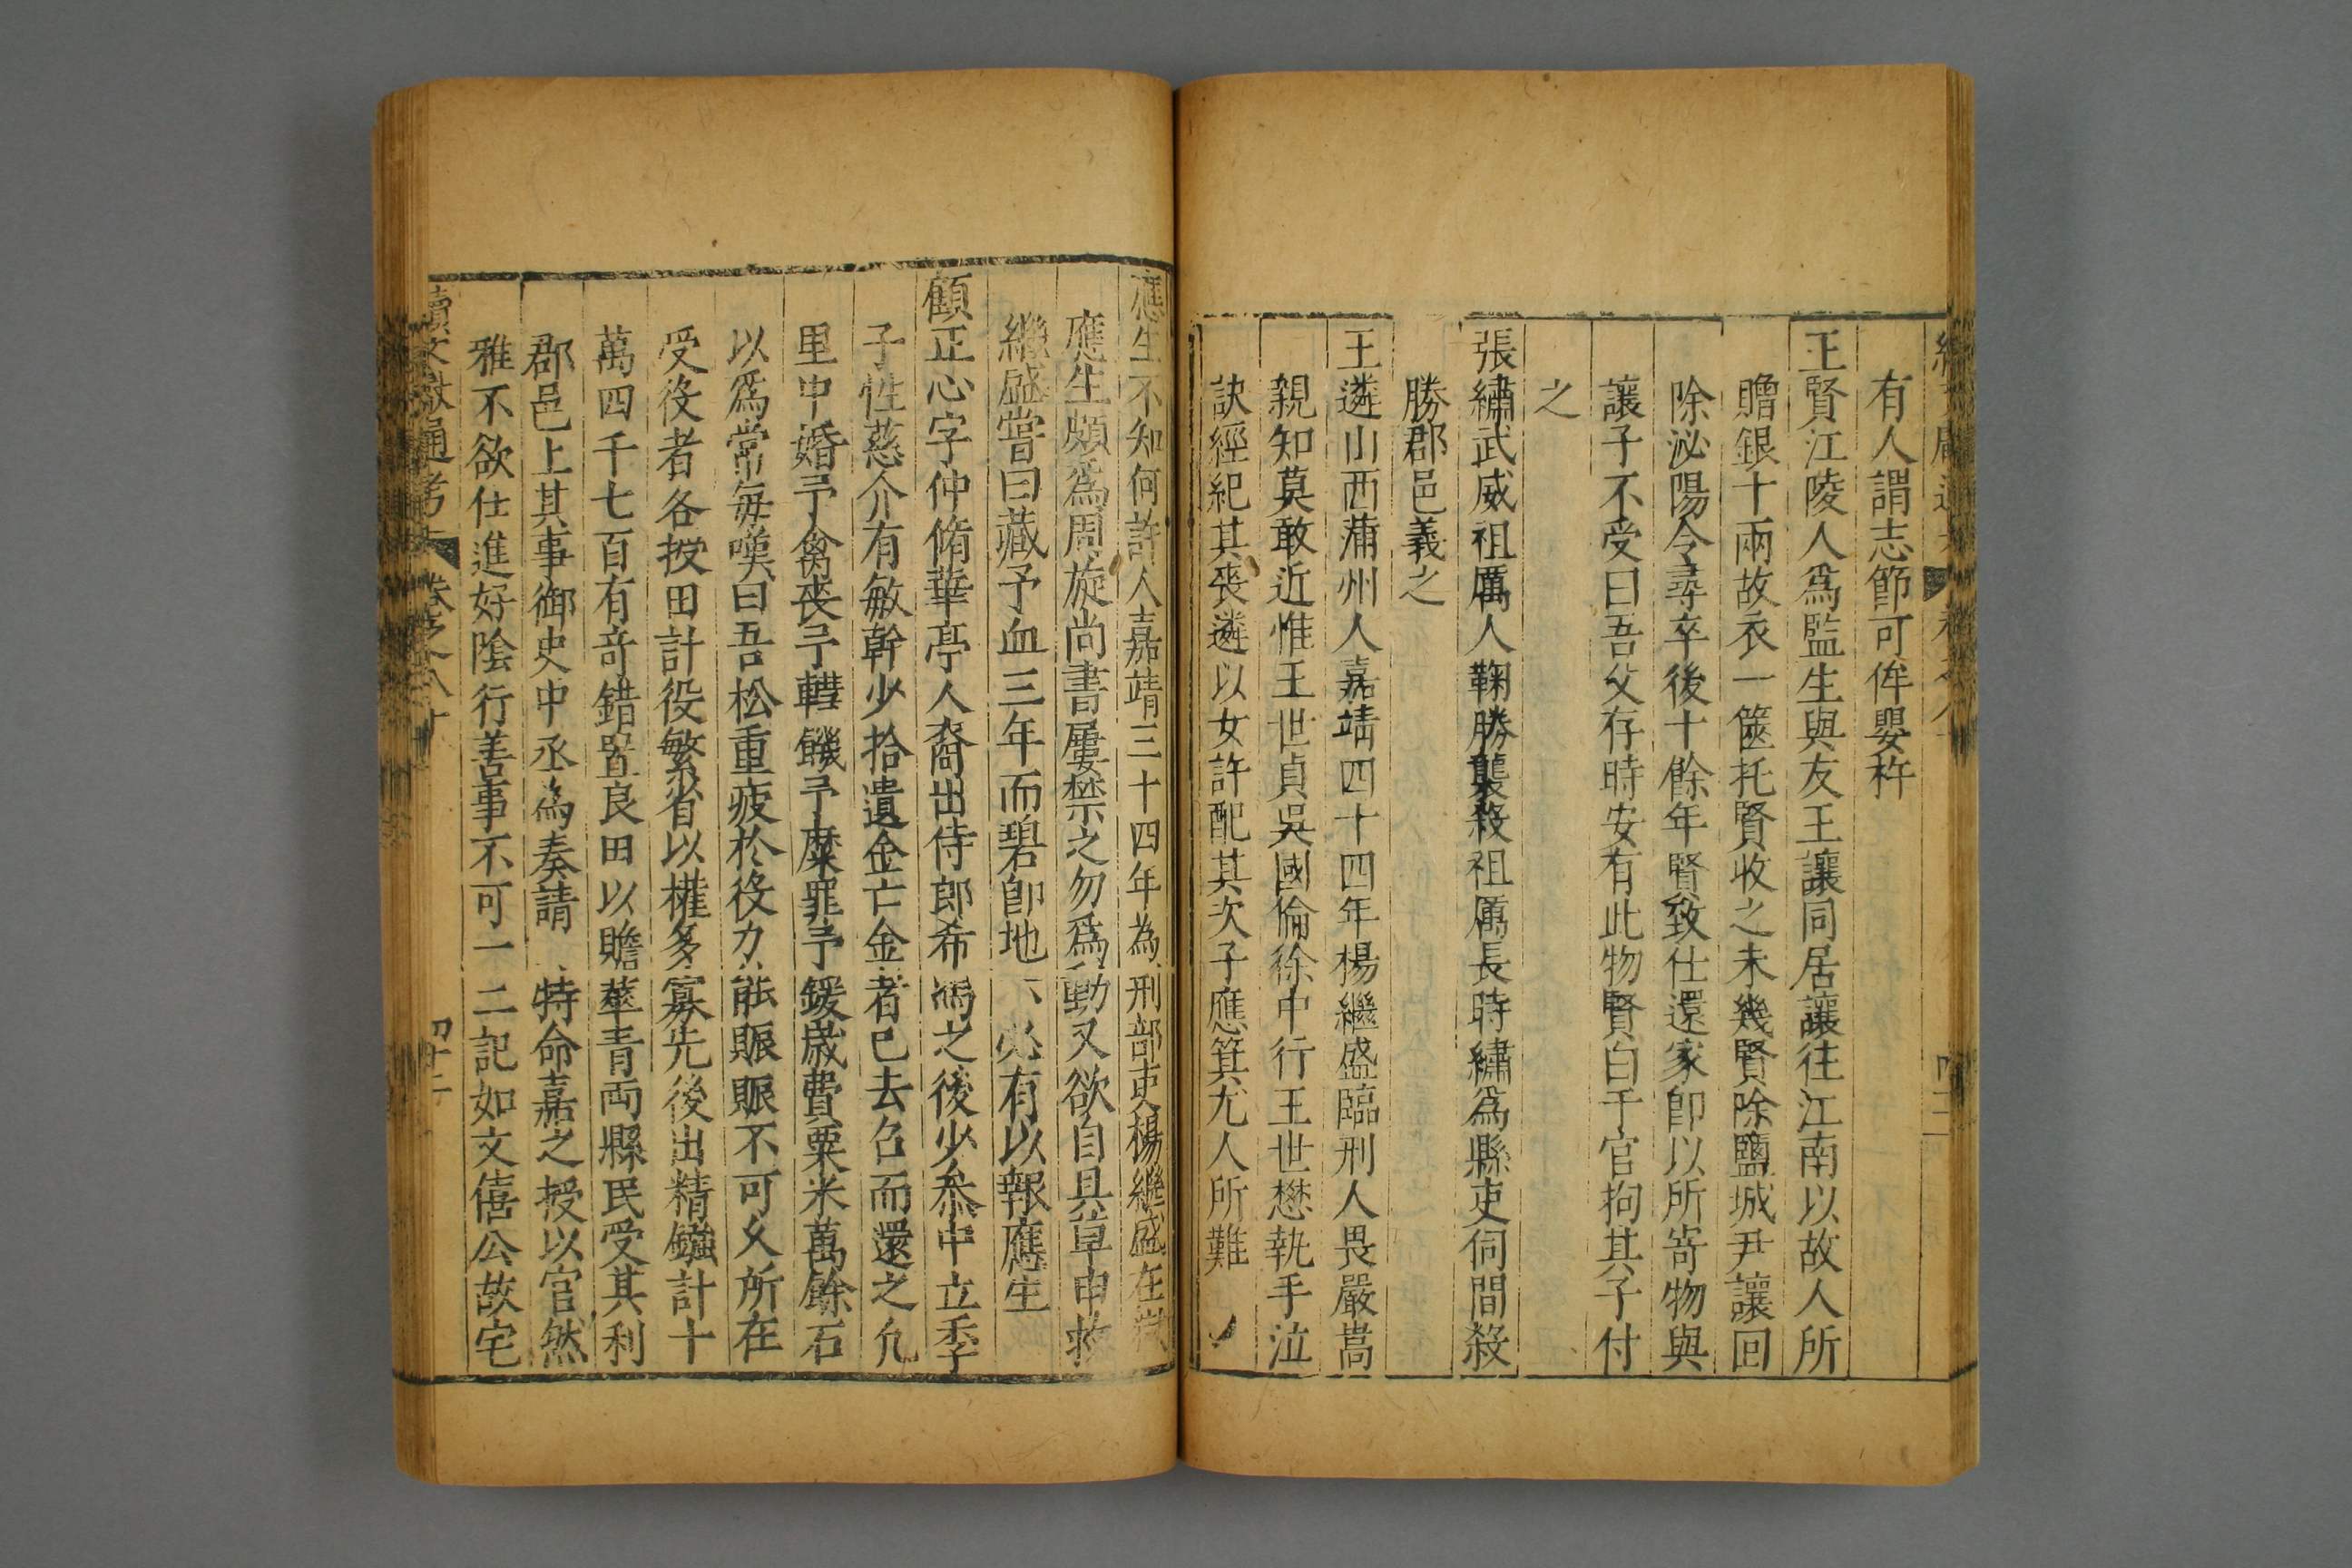 有人謂志節可侔嬰杵
王賢江陵人爲監生與友王讓同居讓往江南以故人所
贈銀十兩故衣一篋托賢收之未幾賢除鹽城尹讓回
除泌陽令尋卒後十餘年賢致仕還家卽以所寄物與
讓子不受曰吾父存時安有此物賢白于官拘其子付
之
張繡武威祖厲人鞠勝襲殺祖厲長時繡爲縣吏伺間殺
勝郡邑義之
王遴山西蒲州人嘉靖四十四年楊繼盛臨刑人畏嚴嵩
親知莫敢近惟王世貞吳國倫徐中行王世懋執手泣
訣經紀其喪遴以女許配其次子應箕尤人所難
應生不知何許人嘉靖三十四年為刑部吏楊繼盛在獄
應生頗爲周旋尚書屢禁之勿爲動又欲自具草申救
繼盛嘗曰藏予血三年而碧卽地下必有以報應生
顧正心字仲脩華亭人裔出侍郎希馮之後少叅中立季
子性慈介有敏幹少拾遺金亡金者已去召而還之凢
里中婚予禽喪予轊饑予糜罪予鍰歲費粟米萬餘石
以爲常每嘆曰吾松重疲於役力能賑賑不可乆所在
受役者各授田計役繁省以權多寡先後出精鏹計十
萬四千七百有竒錯置良田以贍華青両縣民受其利
郡邑上其事御史中丞為奏請 特命嘉之授以官然
雅不欲仕進好陰行善事不可一二記如文僖公故宅
續文獻通考 卷之八十 四十二